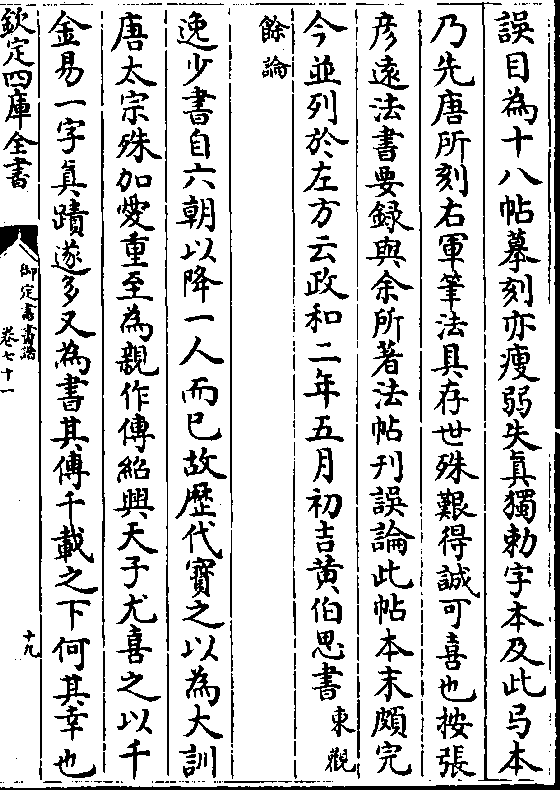 誤目為十八帖摹刻亦瘦弱失真獨勅字本及此弓本
乃先唐所刻右軍筆法具存世殊艱得誠可喜也按張
彦遠法書要録與余所著法帖刋誤論此帖本末頗完
今並列於左方云政和二年五月初吉黄伯思書東觀
餘論
逸少書自六朝以降一人而已故歴代寳之以為大訓
唐太宗殊加愛重至為親作傳紹興天子尤喜之以千
金易一字真蹟遂多又為書其傳千載之下何其幸也
欽定四庫全書
御定書畫譜
卷七十一
十九